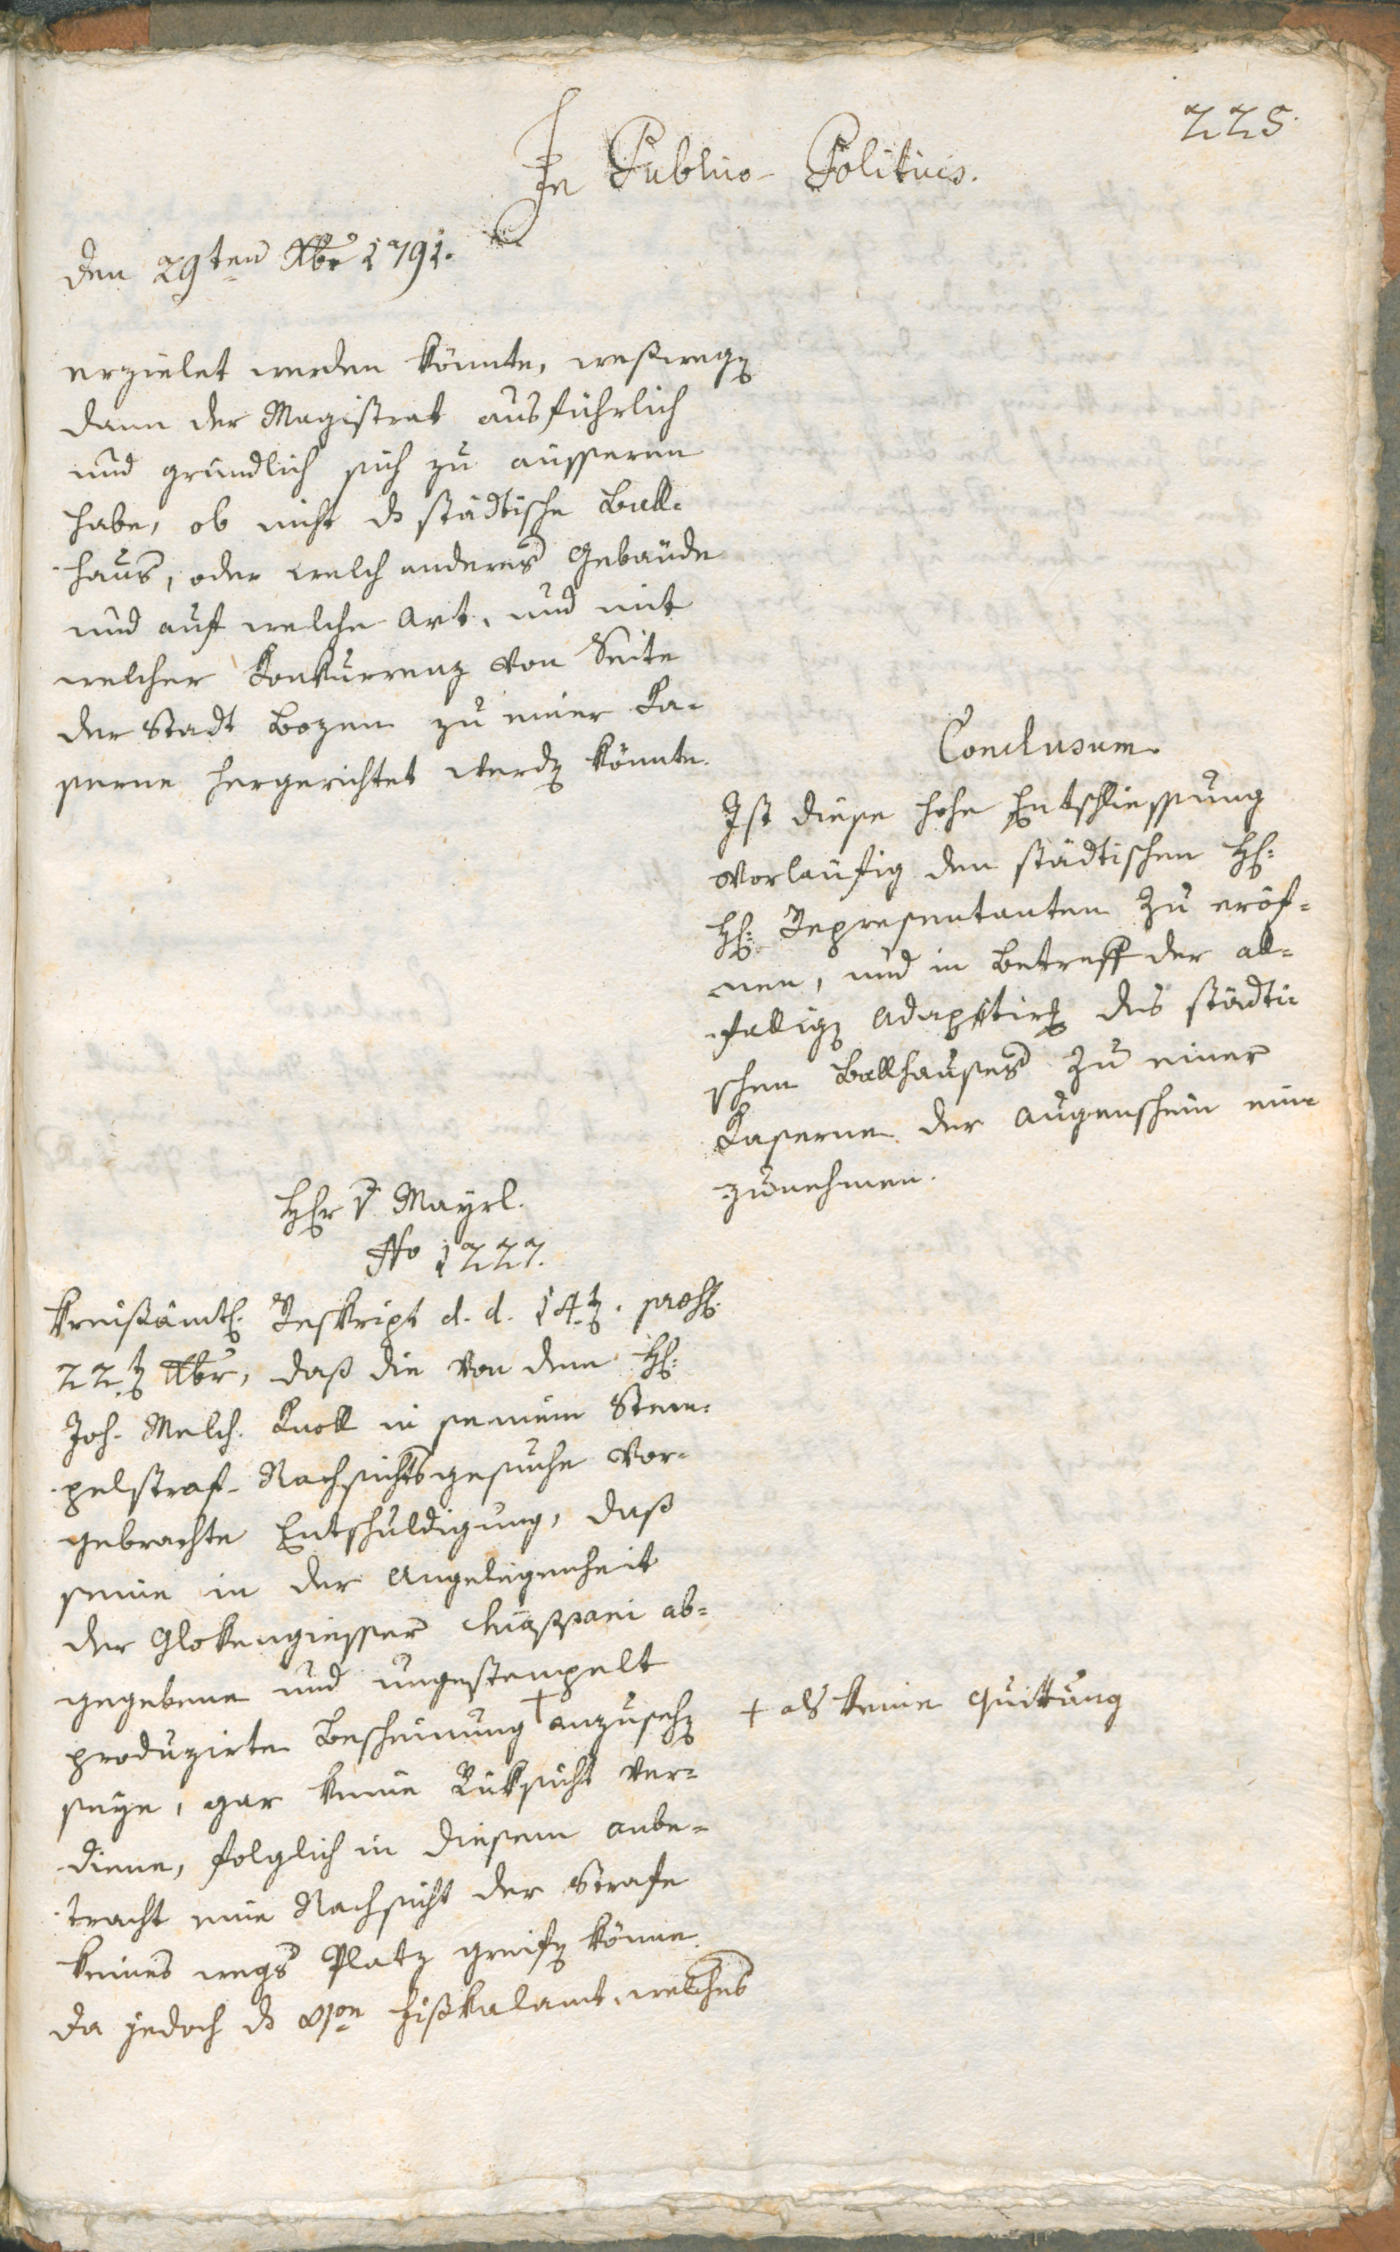 225.
In Publico-Politicis.
den 29ten Xbr 1791.
erzielet werden könnte, weßweg(en)
dann der Magistrat ausführlich
und gründlich sich zu äusseren
habe, ob nicht ds städtische Ball-
haus, oder welch anderes Gebäude
und auf welche Art, und mit
welcher Konkurrenz von Seite
der Stadt Bozen zu einer Ka-
serne hergerichtet werd(en) könnte.
Conclusum.
Ist diese hohe Entschliessung
vorläufig den städtischen H:
H: Representanten zu eröf-
nen, und in Betreff der all-
fällig(en) Adaptir(un)g des städti-
schen Ballhauses zu einer
Kaserne der Augenschein ein-
zunehmen.
Hr v Mayrl.
No 1227.
Kreisämtl. Reskript d. d. 14t. prs.
22t Xbr, daß die von dem H:
Joh. Melch. Knoll in seinem Stem-
pelstraf-Nachsichtsgesuche vor-
gebrachte Entschuldigung, daß
seine in der Angelegenheit
der Glokengiesser Chiappani ab-
gegebene und ungestempelt
produzirte Bescheinung + anzuseh(en)
seye, gar keine Rüksicht ver-
diene, folglich in diesem Anbe-
tracht eine Nachsicht der Strafe
keines wegs Platz greif(en) könne.
da jedoch ds Fißkalamt, welches
+ als keine Quittung